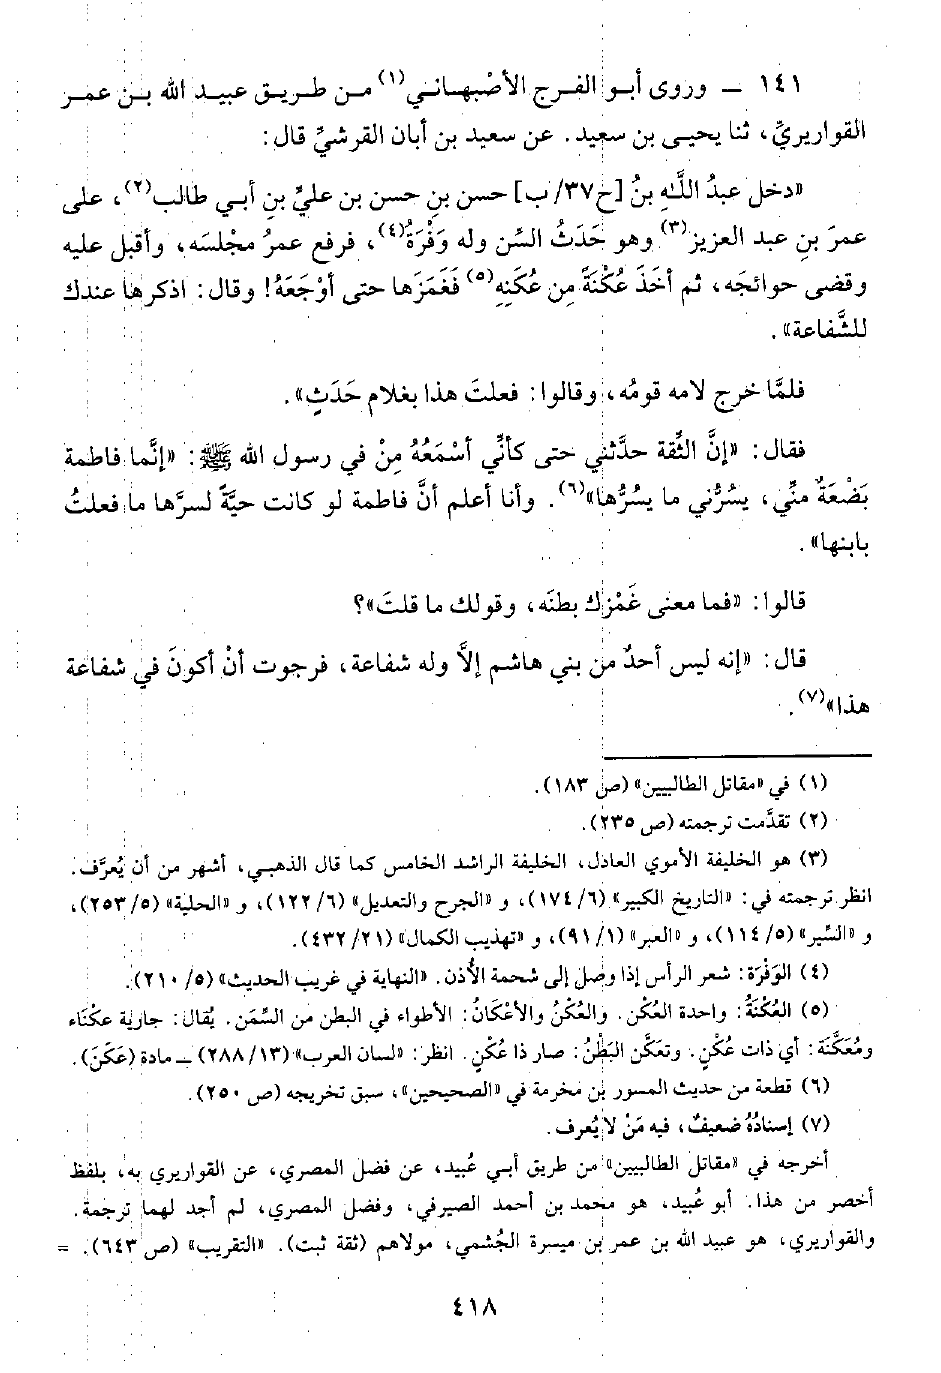 ١٤١ ــ وروى أبو الفرج الأصْبهاني(١) من طريق عبيد الله بن عمر
القواريريِّ، ثنا يحيى بن سعيد. عن سعيد بن أبان القرشيِّ قال:
«دخل عبدُ اللَّهِ بنُ [ح٣٧/ ب] حسن بنِ حسن بن عليِّ بنِ أبي طالب(٢)، على
عمرَ بنِ عبد العزيز(٣) وهو حَدَثُ السِّن وله وَفْرَةٌ(٤)، فرفع عمرُ مجْلسَه، وأقبل عليه
وقضى حوائجَه، ثم أخَذَ عُكْنَةً مِن عُكَنِهِ(٥) فَغَمَزَها حتى أوْجَعَهُ! وقال: اذكرها عندك
للشَّفاعة».
فلمَّا خرج لامه قومُه، وقالوا: فعلتَ هذا بغلام حَدَثٍ».
فقال: «إنَّ الثِّقة حدَّثني حتى كأنِّي أسْمَعُهُ مِنْ في رسول الله ﷺ: «إنَّما فاطمة
بَضْعَةٌ منِّي، يسُرُّني ما يسُرُّها»(٦). وأنا أعلم أنَّ فاطمة لو كانت حيَّةً لسرَّها ما فعلتُ
بابنها».
قالوا: «فما معنى غَمْزِك بطنَه، وقولك ما قلتَ»؟
قال: «إنه ليس أحدٌ من بني هاشم إلاَّ وله شفاعة، فرجوت أنْ أكونَ في شفاعة
هذا»(٧).
(١) في «مقاتل الطالبيين» (ص ١٨٣).
(٢) تقدَّمت ترجمته (ص ٢٣٥).
(٣) هو الخليفة الأموي العادل، الخليفة الراشد الخامس كما قال الذهبي، أشهر من أن يُعرَّف.
انظر ترجمته في: «التاريخ الكبير» (٦/ ١٧٤)، و «الجرح والتعديل» (٦/ ١٢٢)، و «الحلية» (٥/ ٢٥٣)،
و «السِّير» (٥/ ١١٤)، و «العبر» (١/ ٩١)، و «تهذيب الكمال» (٢١/ ٤٣٢).
(٤) الوَفْرَة: شعر الرأس إذا وصل إلى شحمة الأُذن. «النهاية في غريب الحديث» (٥/ ٢١٠).
(٥) العُكْنَةُ: واحدة العُكْن. والعُكْنُ والأعْكَانُ: الأطواء في البطن من السِّمَن. يُقال: جارية عكْنَاء
ومُعَكَّنَة: أي ذات عُكْنٍ. وتعَكَّن البَطْنُ: صار ذا عُكْنٍ. انظر: «لسان العرب» (١٣/ ٢٨٨) ــ مادة (عَكَنَ).
(٦) قطعة من حديث المسور بن مخرمة في «الصحيحين»، سبق تخريجه (ص ٢٥٠).
(٧) إسنادُهُ ضعيفٌ، فيه مَنْ لا يُعرف.
أخرجه في «مقاتل الطالبيين» من طريق أبي عُبيد، عن فضل المصري، عن القواريري به، بلفظ
أخصر من هذا. أبو عُبيد، هو محمد بن أحمد الصيرفي، وفضل المصري، لم أجد لهما ترجمة.
والقواريري، هو عبيد الله بن عمر بن ميسرة الجُشمي، مولاهم (ثقة ثبت). «التقريب» (ص ٦٤٣). =
٤١٨